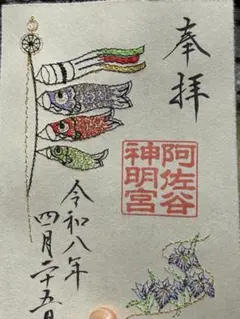 奉拝
阿佐谷
神明宮
令和八年
四月二十五日